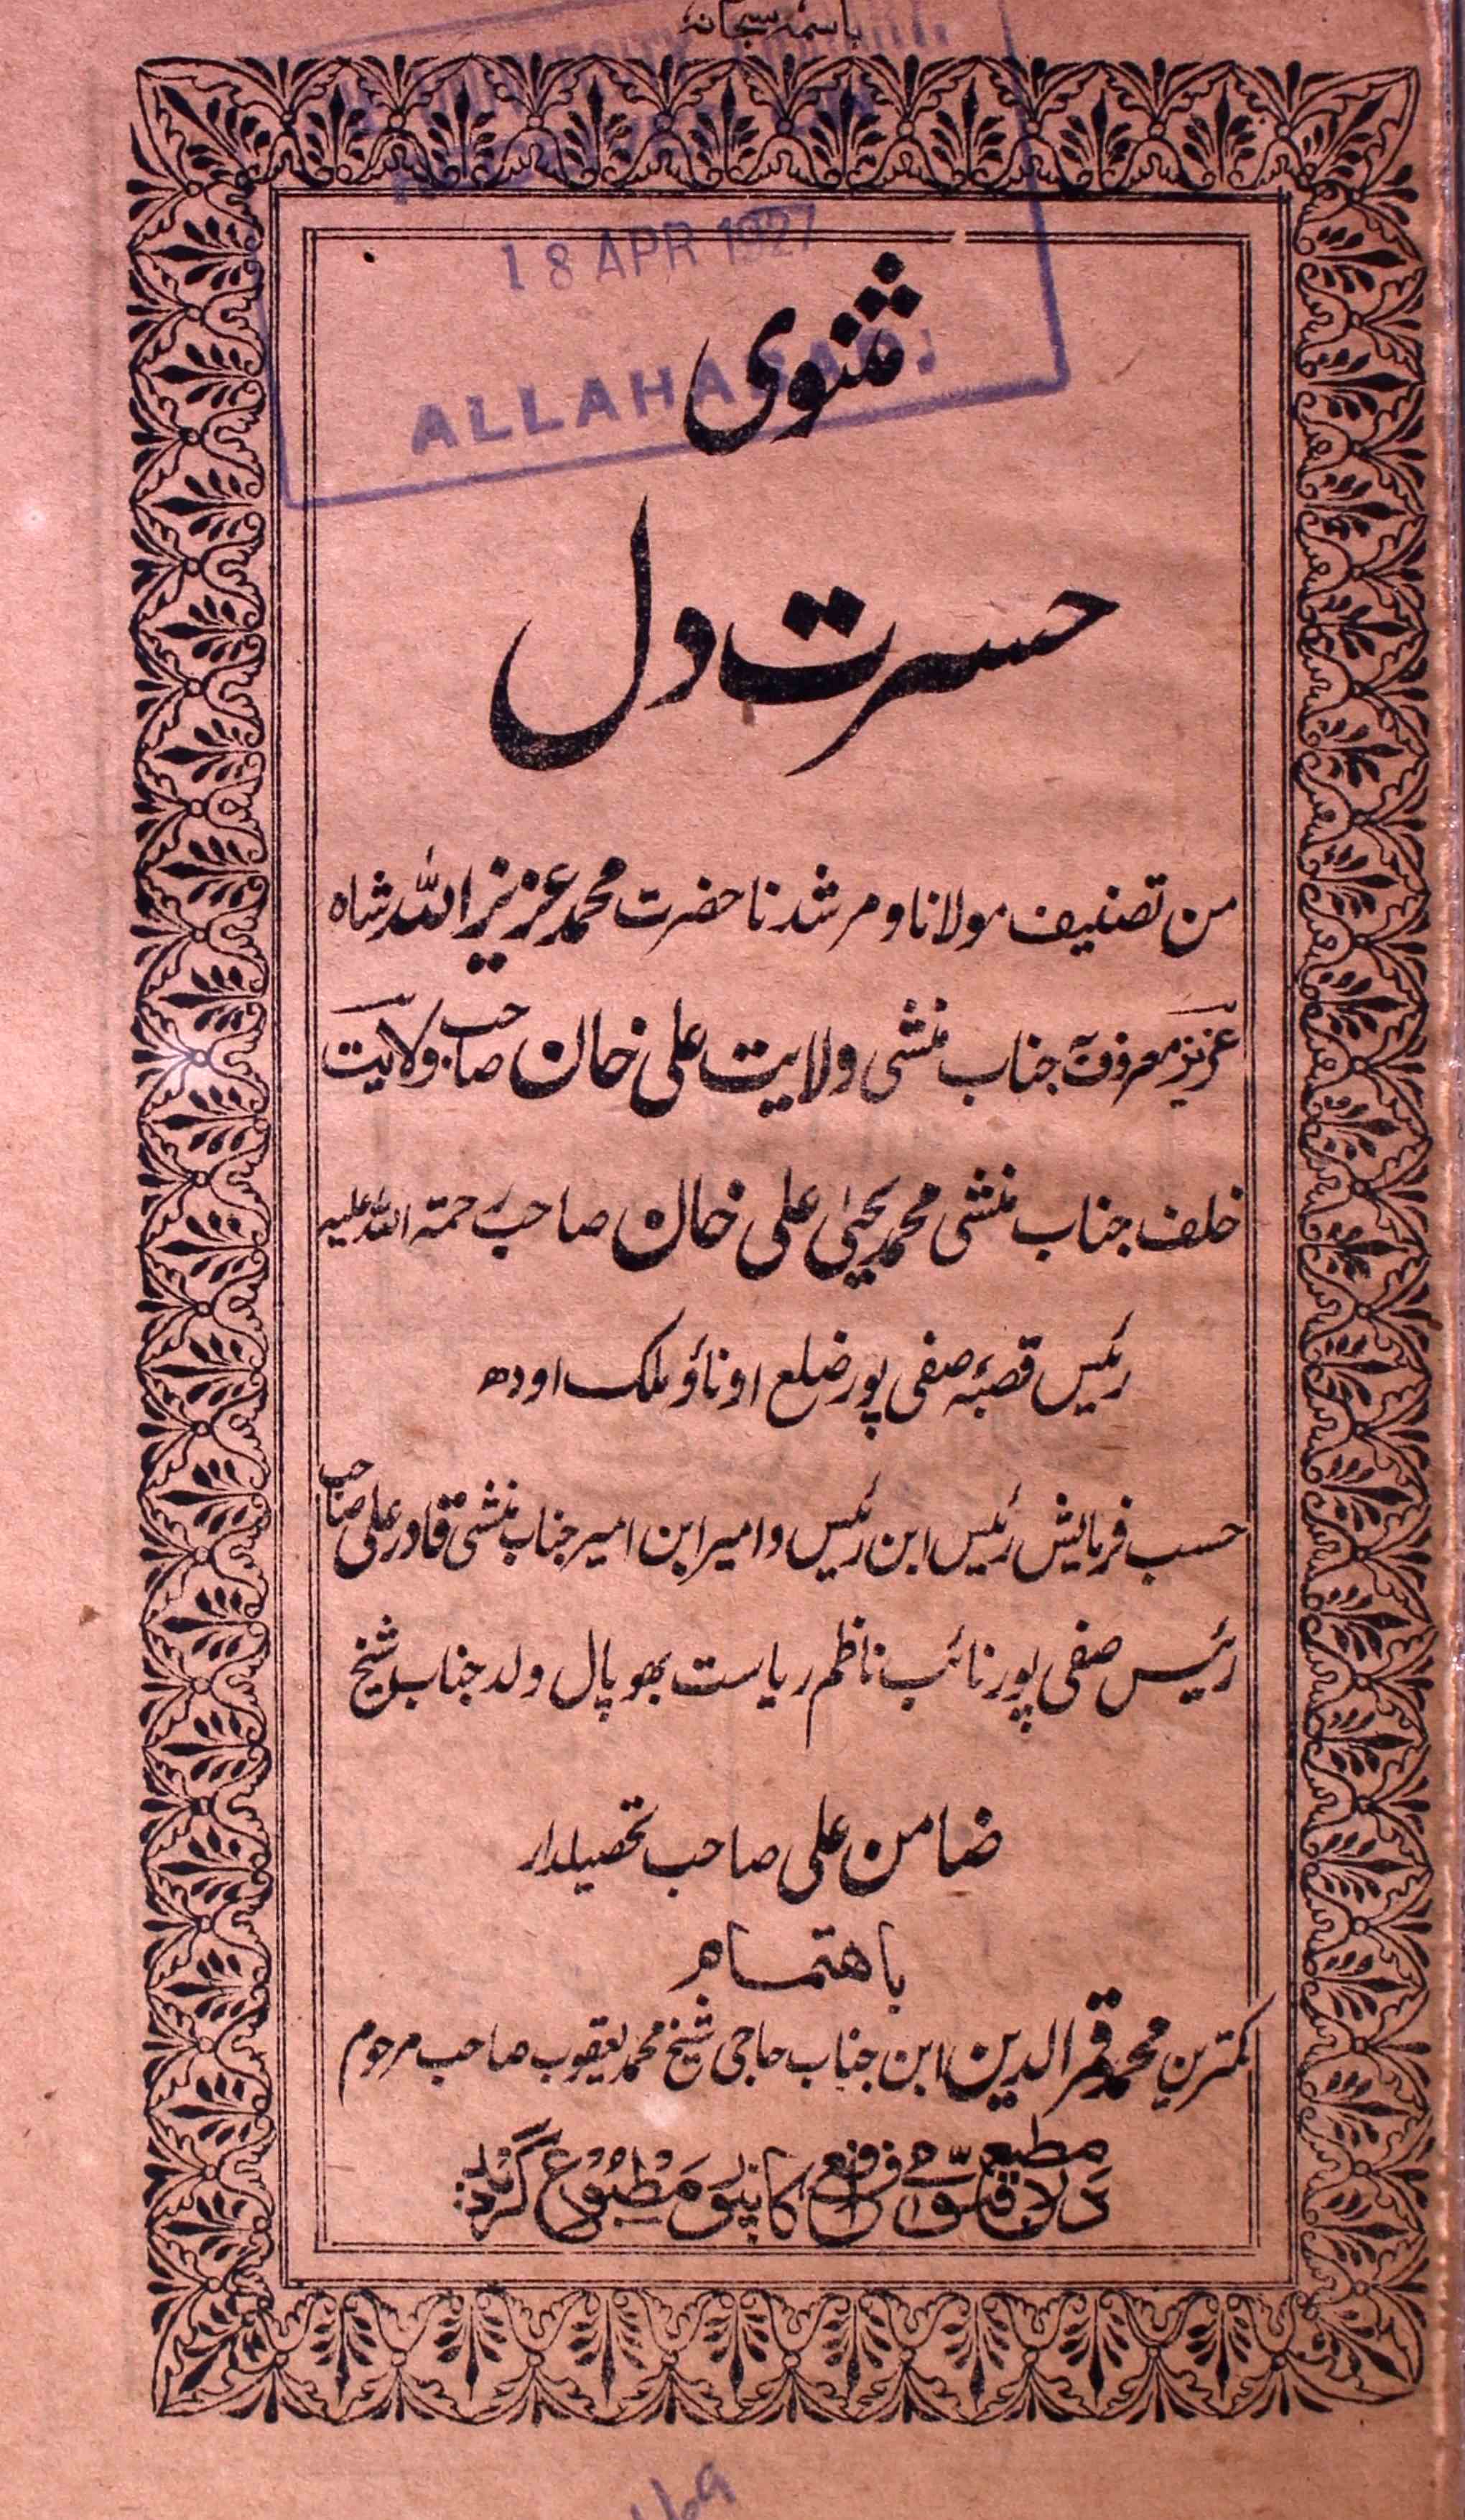 باسمہ سبحانہ
18 APR 1927
ALLAHABAD.
مثنوی
حسرت دل
من تصنیف مولانا و مرشدنا حضرت محمد عزیز اللہ شاہ
عزیز معروف بہ جناب منشی ولایت علی خان صاحب ولایت
خلف جناب منشی محمد یحییٰ علی خان صاحب رحمۃ اللہ علیہ
رئیس قصبۂ صفی پور ضلع اوناؤ ملک اودھ
حسب فرمایش رئیس ابن رئیس و امیر ابن امیر جناب منشی قادر علی صاحب
رئیس صفی پور نائب ناظم ریاست بھوپال ولد جناب شیخ
ضامن علی صاحب تحصیلدار
باهتمام
کمترین محمد قمر الدین ابن جناب حاجی شیخ محمد یعقوب صاحب مرحوم
در مطبع واقع کانپور مطبوع گردید